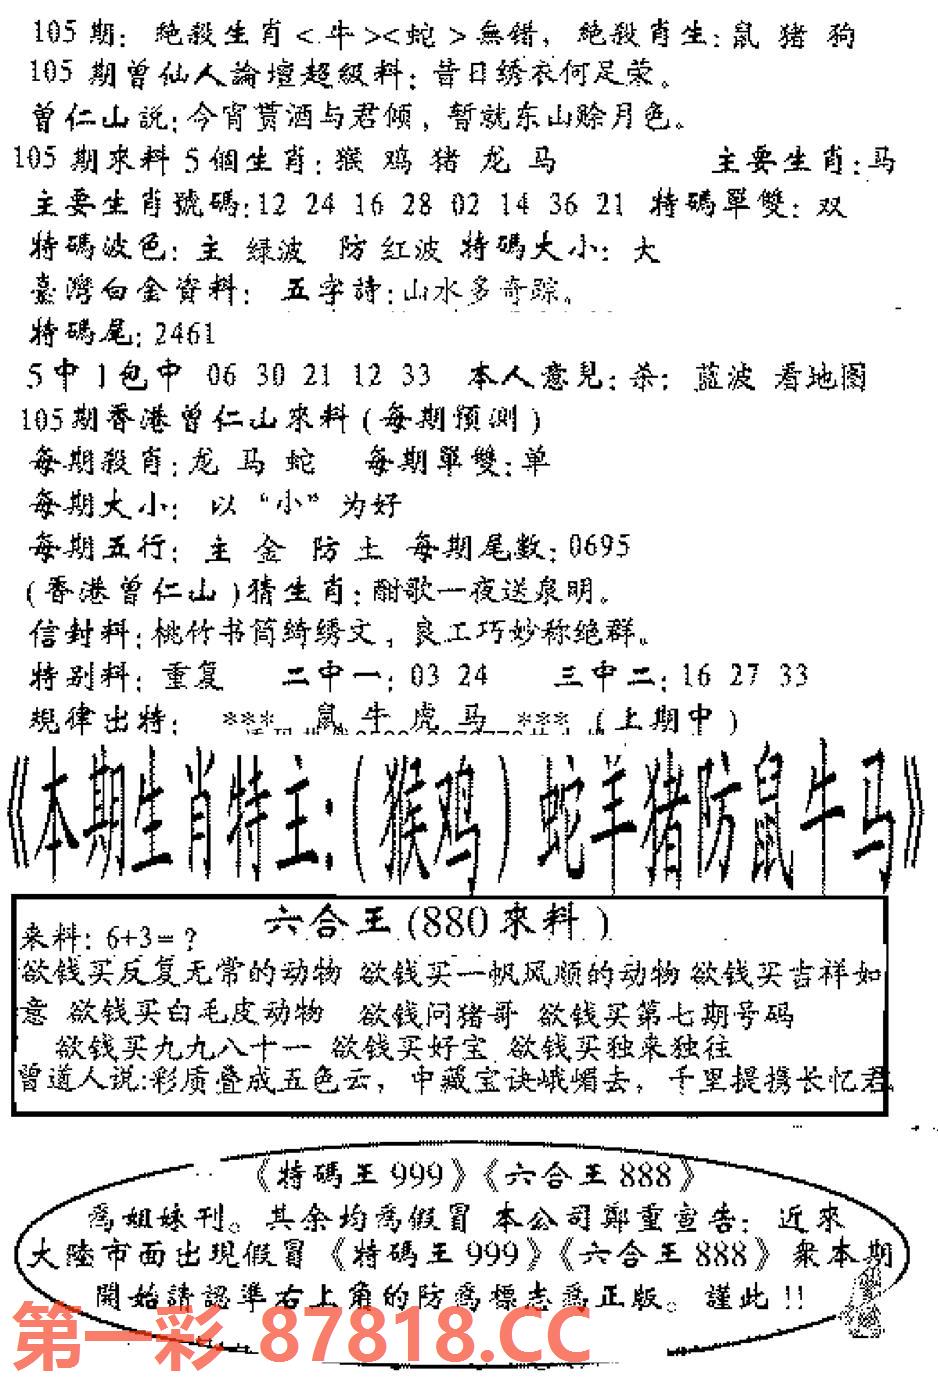 105 期: 絶殺生肖<牛><蛇>無錯, 絶殺肖生:鼠 猪 狗
105 期曾仙人論壇超級料:昔日绣衣何足荣。
曾仁山説:今宵贳酒与君倾, 暂就东山赊月色。
105 期來料 5 個生肖:猴 鸡 猪 龙 马 主要生肖:马
主要生肖號碼:12 24 16 28 02 14 36 21 特碼單雙: 双
特碼波色: 主 绿波 防 红波 特碼大小: 大
臺灣白金資料: 五字詩:山水多奇踪。
特碼尾:2461
5 中 1 包中 06 30 21 12 33 本人意見:恭: 蓝波 看地图
105期香港曾仁山來料(每期預測)
每期殺肖:龙 马 蛇 每期單雙:单
每期大小: 以 “小” 为好
每期五行: 主 金 防 土 每期尾数:0695
(香港曾仁山)猜生肖:酣歌一夜送泉明。
信封料:桃竹书筒绮绣文, 良工巧妙称绝群。
特别料: 重复 二中一: 03 24 三中二:16 27 33
規律出特: *** 鼠 牛 虎 马 *** (上期中)
《本期生肖特主:(猴鸡)蛇羊猪防鼠牛马》
六合王(880來料)
来料: 6+3=?
欲钱买反复无常的动物 欲钱买一帆风顺的动物 欲钱买吉祥如
意 欲钱买白毛皮动物 欲钱问猪哥 欲钱买第七期号码
欲钱买九九八十一 欲钱买好宝 欲钱买独来独往
曾道人说:彩质叠成五色云, 中藏宝诀峨嵋去, 千里提携长忆君
《特碼王 999》《六合王 888》
爲姐妹刊。其余均爲假冒 本公司鄭重宣告: 近來
大陸市面出現假冒《特碼王 999》《六合王 888》 衆本期
開始請認準右上角的防爲標志爲正版。謹此!!
第一彩 87818.CC